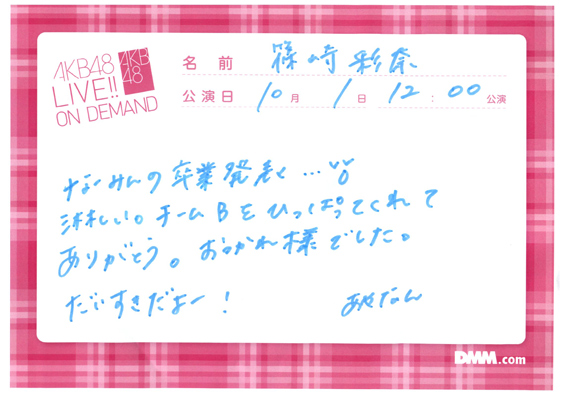 AKB48
LIVE!!
ON DEMAND
AKB
48
名前 篠崎彩奈
公演日 10月 1日 12:00公演
なーみんの卒業発表...
淋しい。チームBをひっぱってくれて
ありがとう。おつかれ様でした。
だいすきだよー!
あやなん
DMM.com